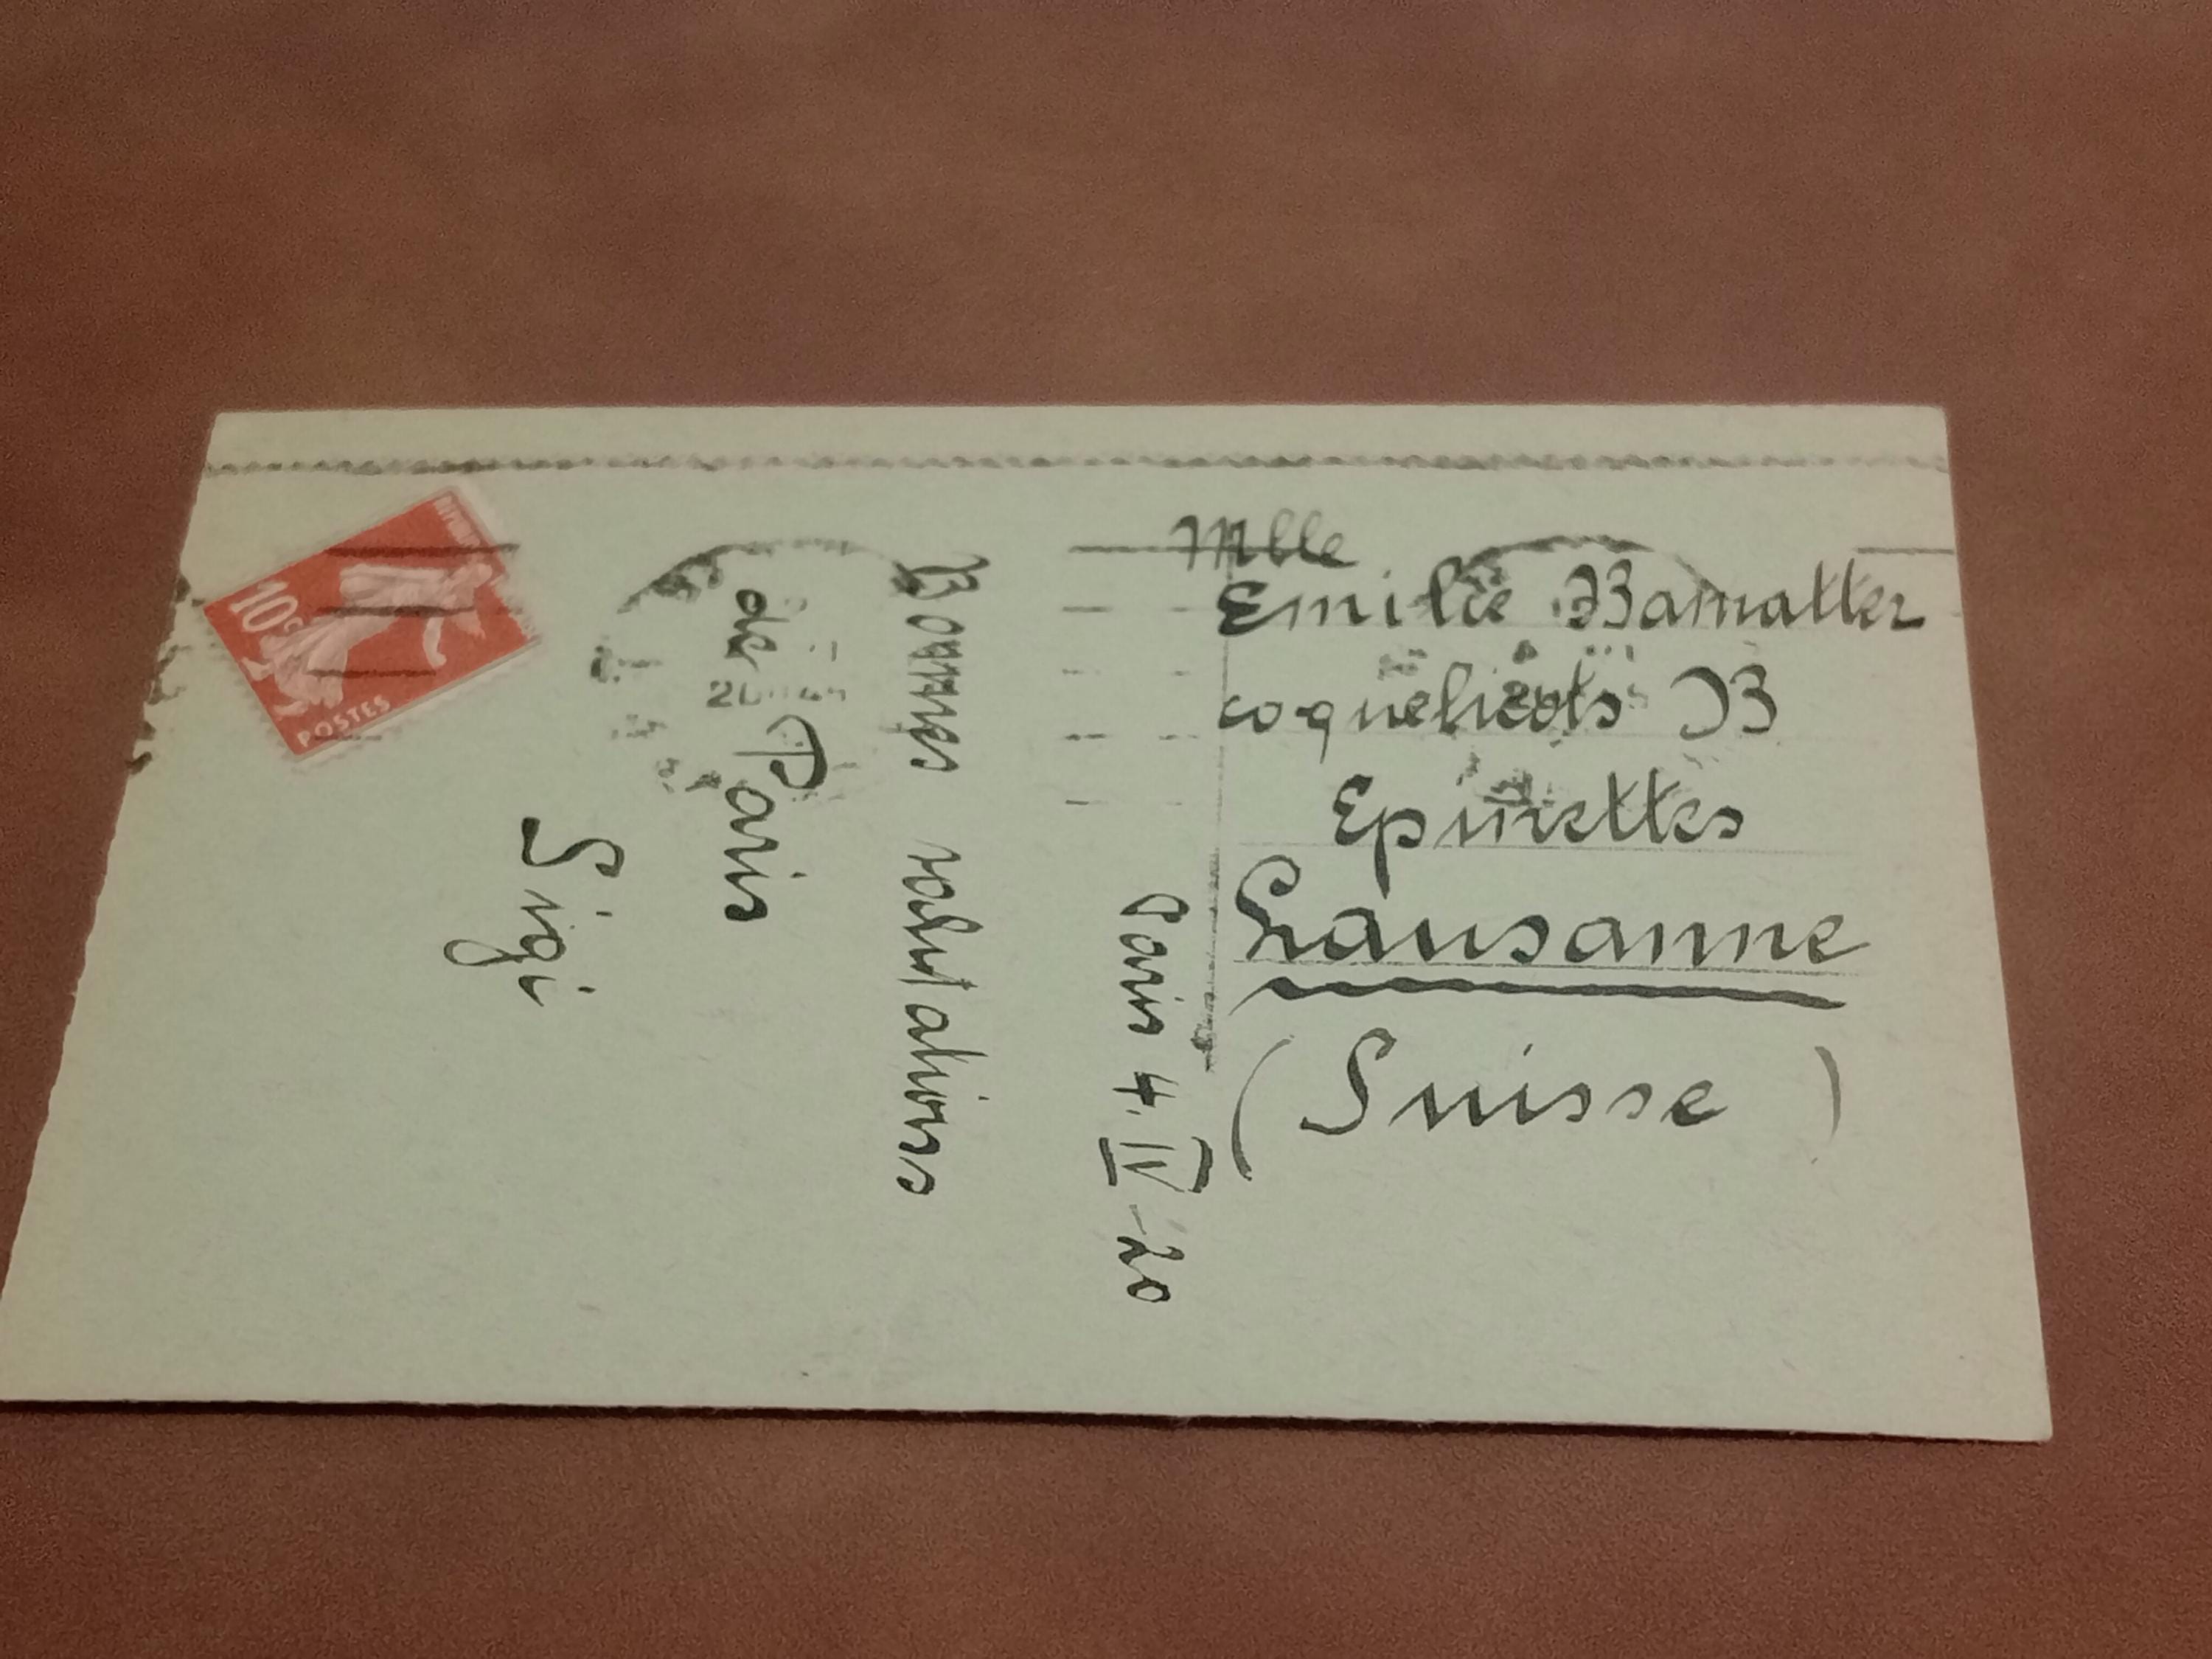 Paris 4. IV - 20
Bonnes salutations
de Paris
Sigi
Mlle
Emilie Bamatter
coquelicots B
Epinettes
Lausanne
(Suisse)
10c
POSTES